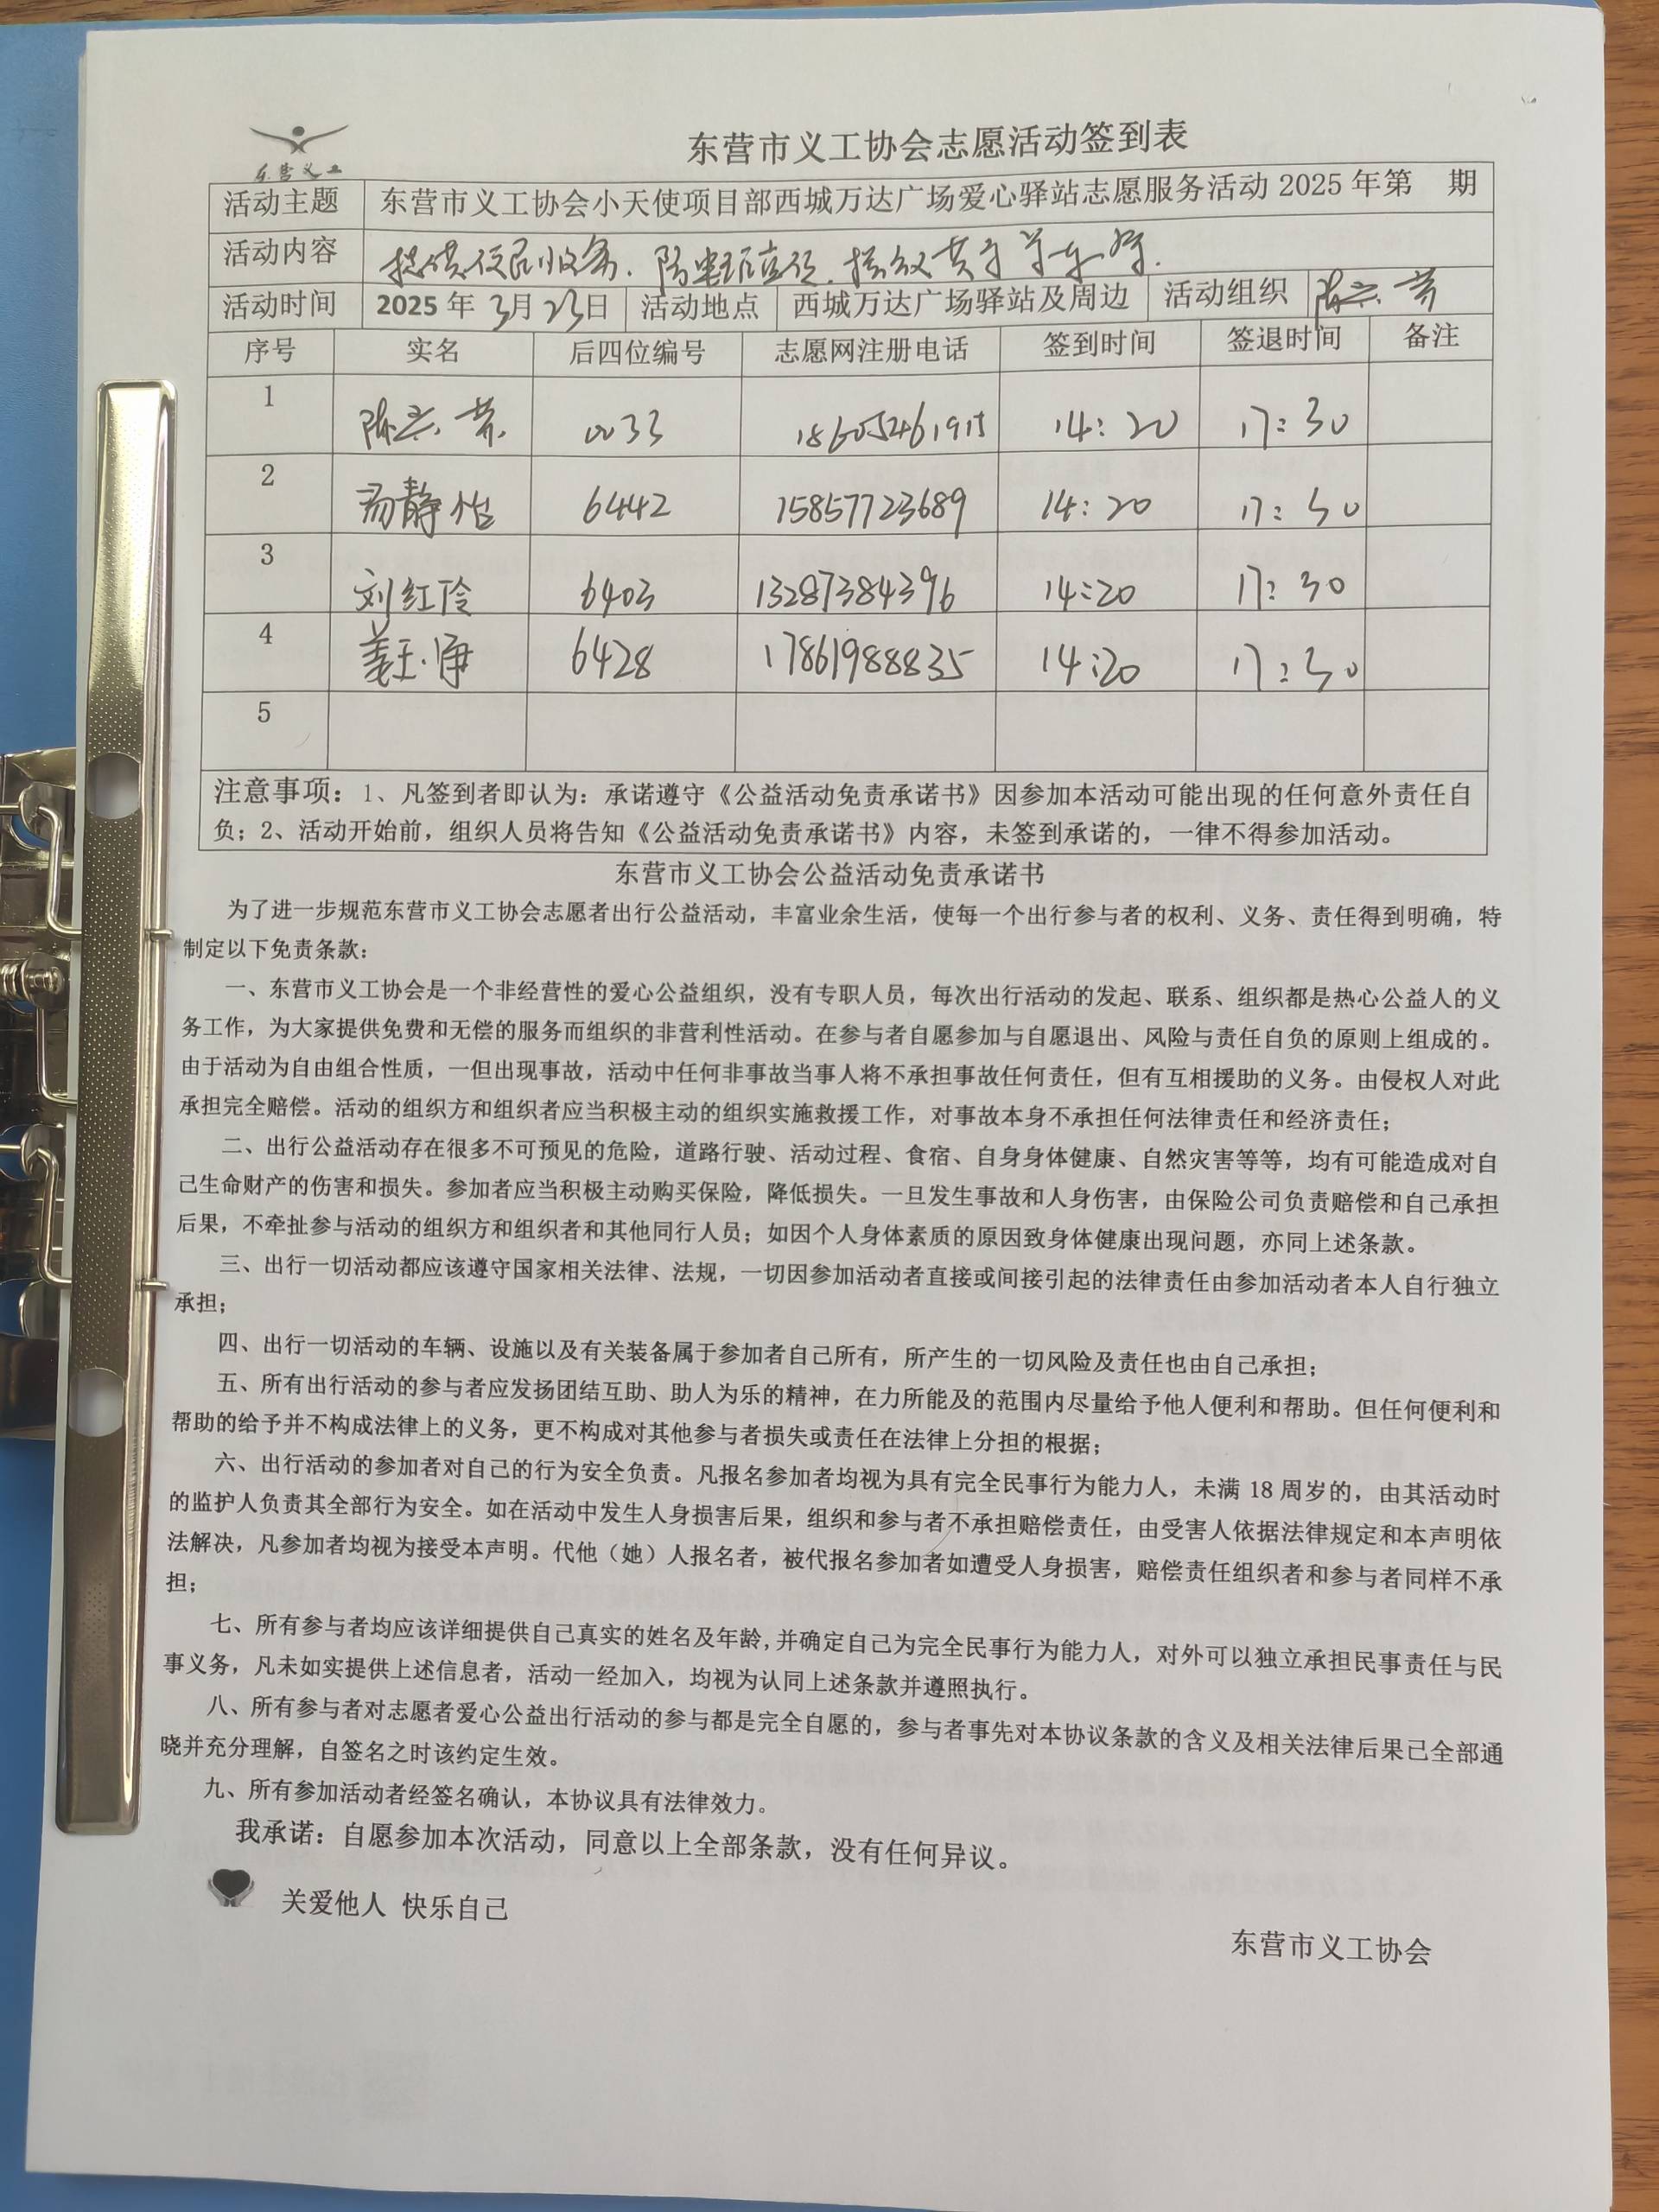 东营市义工协会志愿活动签到表
东营义工
活动主题 东营市义工协会小天使项目部西城万达广场爱心驿站志愿服务活动 2025 年第 期
活动内容 提供便民服务、防电诈宣传、摆放共享单车等.
活动时间 2025 年 3月 23日 活动地点 西城万达广场驿站及周边 活动组织
序号 实名 后四位编号 志愿网注册电话 签到时间 签退时间 备注
1 0033 18605461915 14:20 17:30
2 静怡 6442 15857723689 14:20 17:30
3 刘红伶 6403 13287384396 14:20 17:30
4 姜玉净 6428 17861988835 14:20 17:30
5
注意事项：1、凡签到者即认为：承诺遵守《公益活动免责承诺书》因参加本活动可能出现的任何意外责任自
负；2、活动开始前，组织人员将告知《公益活动免责承诺书》内容，未签到承诺的，一律不得参加活动。
东营市义工协会公益活动免责承诺书
为了进一步规范东营市义工协会志愿者出行公益活动，丰富业余生活，使每一个出行参与者的权利、义务、责任得到明确，特
制定以下免责条款：
一、东营市义工协会是一个非经营性的爱心公益组织，没有专职人员，每次出行活动的发起、联系、组织都是热心公益人的义
务工作，为大家提供免费和无偿的服务而组织的非营利性活动。在参与者自愿参加与自愿退出、风险与责任自负的原则上组成的。
由于活动为自由组合性质，一但出现事故，活动中任何非事故当事人将不承担事故任何责任，但有互相援助的义务。由侵权人对此
承担完全赔偿。活动的组织方和组织者应当积极主动的组织实施救援工作，对事故本身不承担任何法律责任和经济责任；
二、出行公益活动存在很多不可预见的危险，道路行驶、活动过程、食宿、自身身体健康、自然灾害等等，均有可能造成对自
己生命财产的伤害和损失。参加者应当积极主动购买保险，降低损失。一旦发生事故和人身伤害，由保险公司负责赔偿和自己承担
后果，不牵扯参与活动的组织方和组织者和其他同行人员；如因个人身体素质的原因致身体健康出现问题，亦同上述条款。
三、出行一切活动都应该遵守国家相关法律、法规，一切因参加活动者直接或间接引起的法律责任由参加活动者本人自行独立
承担；
四、出行一切活动的车辆、设施以及有关装备属于参加者自己所有，所产生的一切风险及责任也由自己承担；
五、所有出行活动的参与者应发扬团结互助、助人为乐的精神，在力所能及的范围内尽量给予他人便利和帮助。但任何便利和
帮助的给予并不构成法律上的义务，更不构成对其他参与者损失或责任在法律上分担的根据；
六、出行活动的参加者对自己的行为安全负责。凡报名参加者均视为具有完全民事行为能力人，未满 18 周岁的，由其活动时
的监护人负责其全部行为安全。如在活动中发生人身损害后果，组织和参与者不承担赔偿责任，由受害人依据法律规定和本声明依
法解决，凡参加者均视为接受本声明。代他（她）人报名者，被代报名参加者如遭受人身损害，赔偿责任组织者和参与者同样不承
担；
七、所有参与者均应该详细提供自己真实的姓名及年龄,并确定自己为完全民事行为能力人，对外可以独立承担民事责任与民
事义务，凡未如实提供上述信息者，活动一经加入，均视为认同上述条款并遵照执行。
八、所有参与者对志愿者爱心公益出行活动的参与都是完全自愿的，参与者事先对本协议条款的含义及相关法律后果已全部通
晓并充分理解，自签名之时该约定生效。
九、所有参加活动者经签名确认，本协议具有法律效力。
我承诺：自愿参加本次活动，同意以上全部条款，没有任何异议。
关爱他人 快乐自己
东营市义工协会